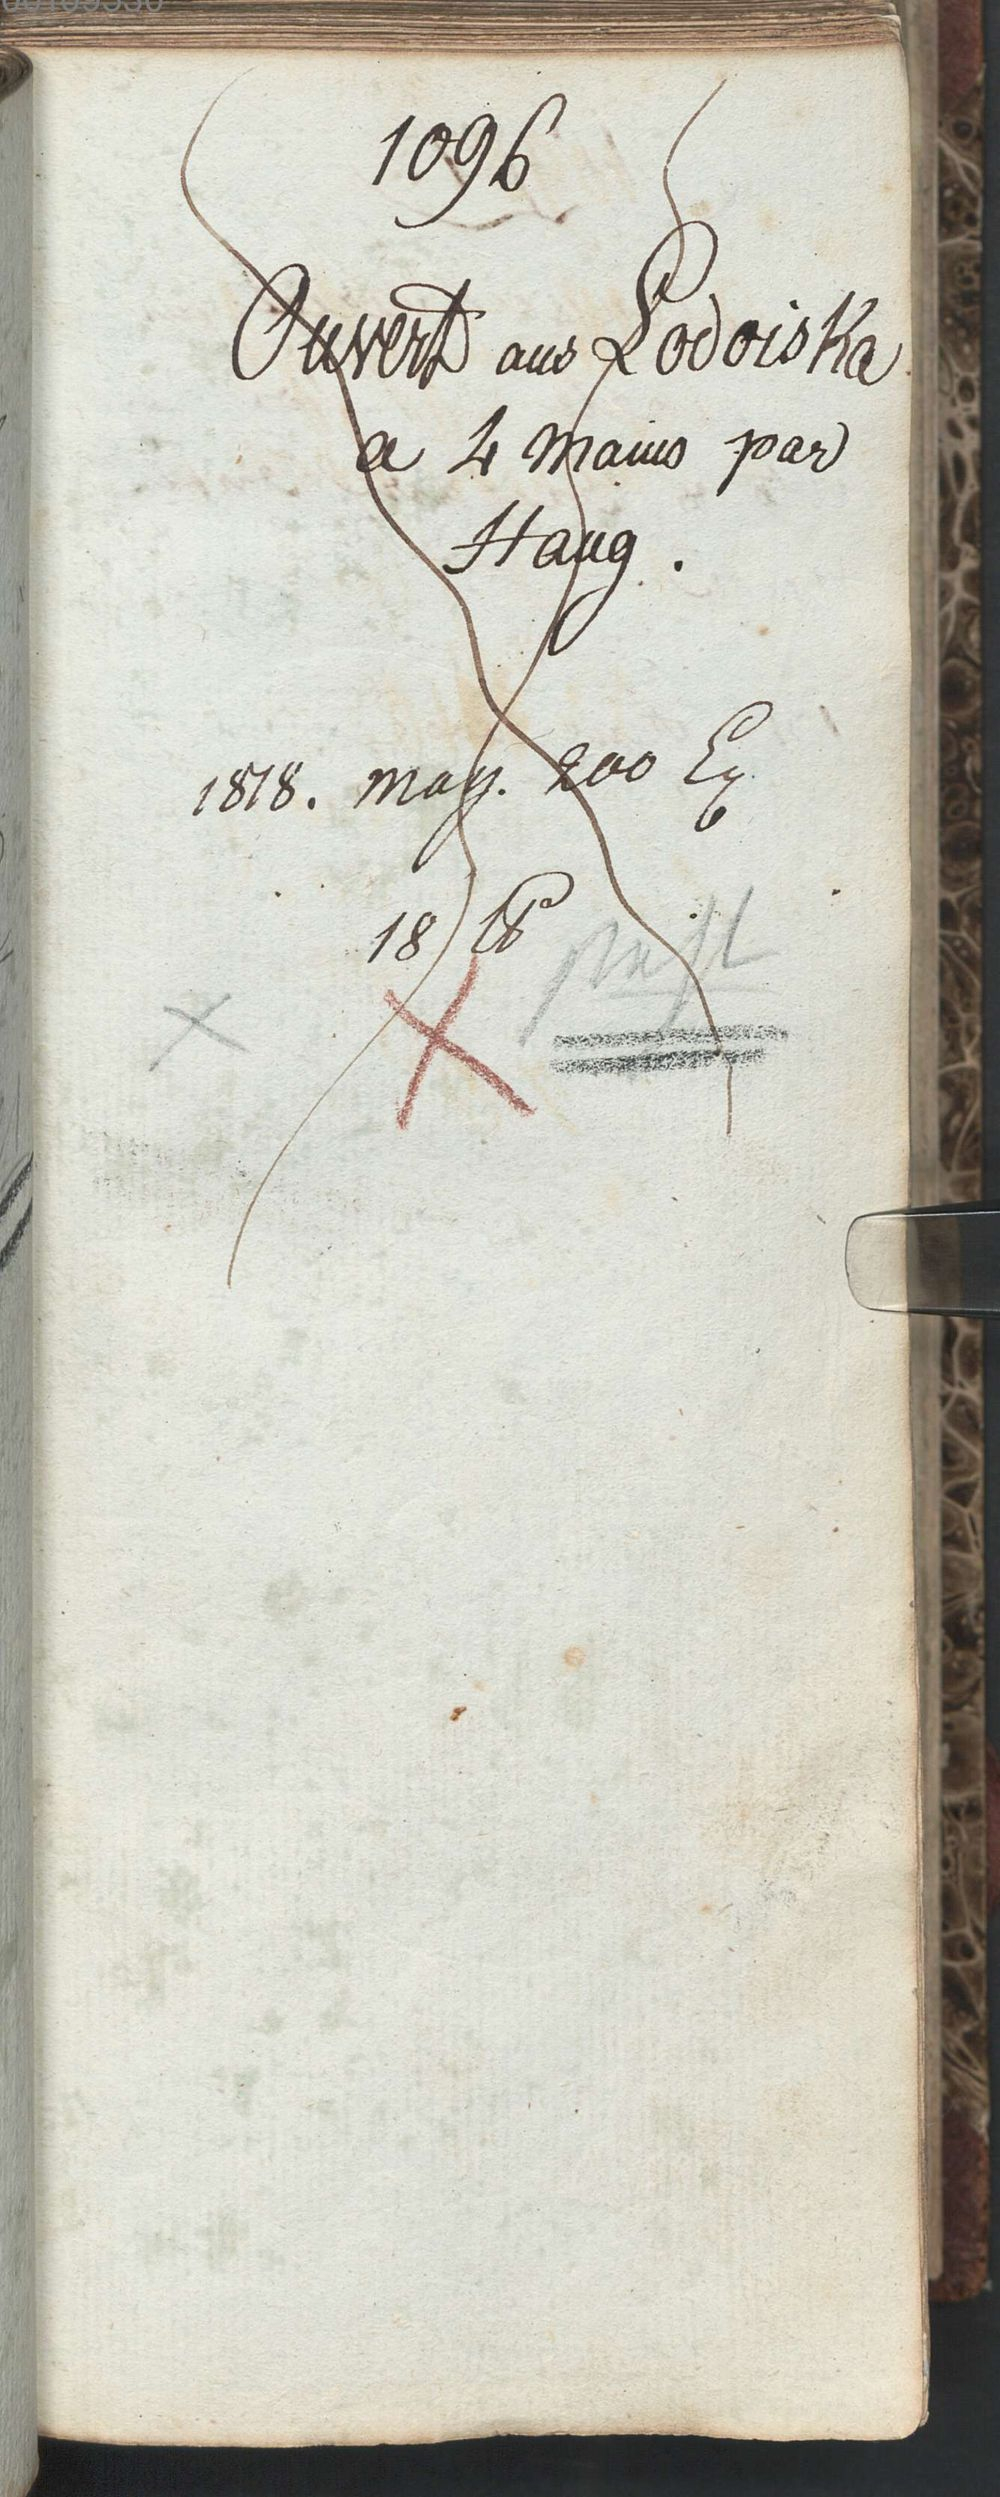 1096
Ouvert aus Lodoiska
a 4 mains par
Haug.
1818. may. 200 Ex
18